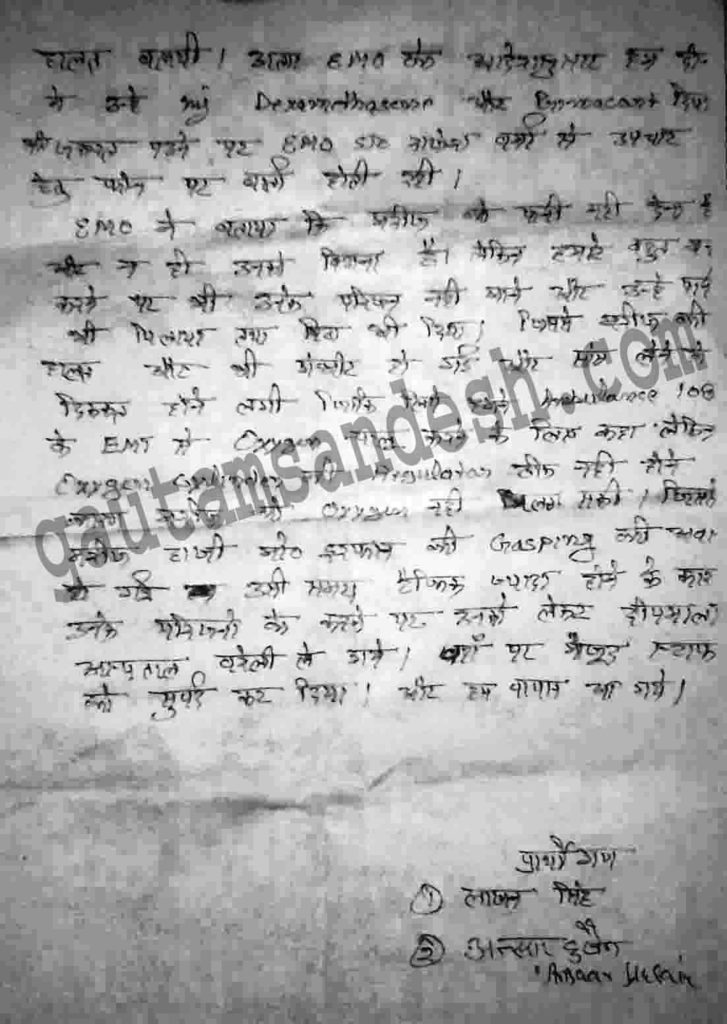 हालत बतायी। अतः EMO के आदेशानुसार हम
ने उन्हें Inj Dexamethasone और दिया
की जरूरत पड़ने पर EMO से उपचार
हेतु फोन पर वार्ता होती रही।
EMO ने बताया कि मरीज को पानी नहीं देना है
और न ही उनको है। लेकिन हमारे बहुत मना
करने पर भी उनके परिजन नहीं माने और उन्हें पानी
भी पिलाया तथा दिया। जिससे मरीज की
हालत और भी हो गई और सांस लेने में
दिक्कत होने लगी जिसके लिये हमने Ambullance 108
के EMT से Oxygen चालू करने के लिए कहा लेकिन
Oxygen की Regulator ठीक नहीं होने
कारण मरीज को Oxygen नहीं लग सकी। जिससे
मरीज हाजी मो० इरफान की Gasping की
हो गई उसी समय ट्रैफिक ज्यादा होने के कारण
उनके परिजनों के कहने पर उनको लेकर दीपमाला
अस्पताल बरेली ले आये। वहाँ पर मौजूद स्टाफ
को सुपुर्द कर दिया। और हम वापस आ गये।
प्रार्थीगण
① लाखन सिंह
② अन्सार हुसैन
Ansaar Husain
gautamsandesh.com